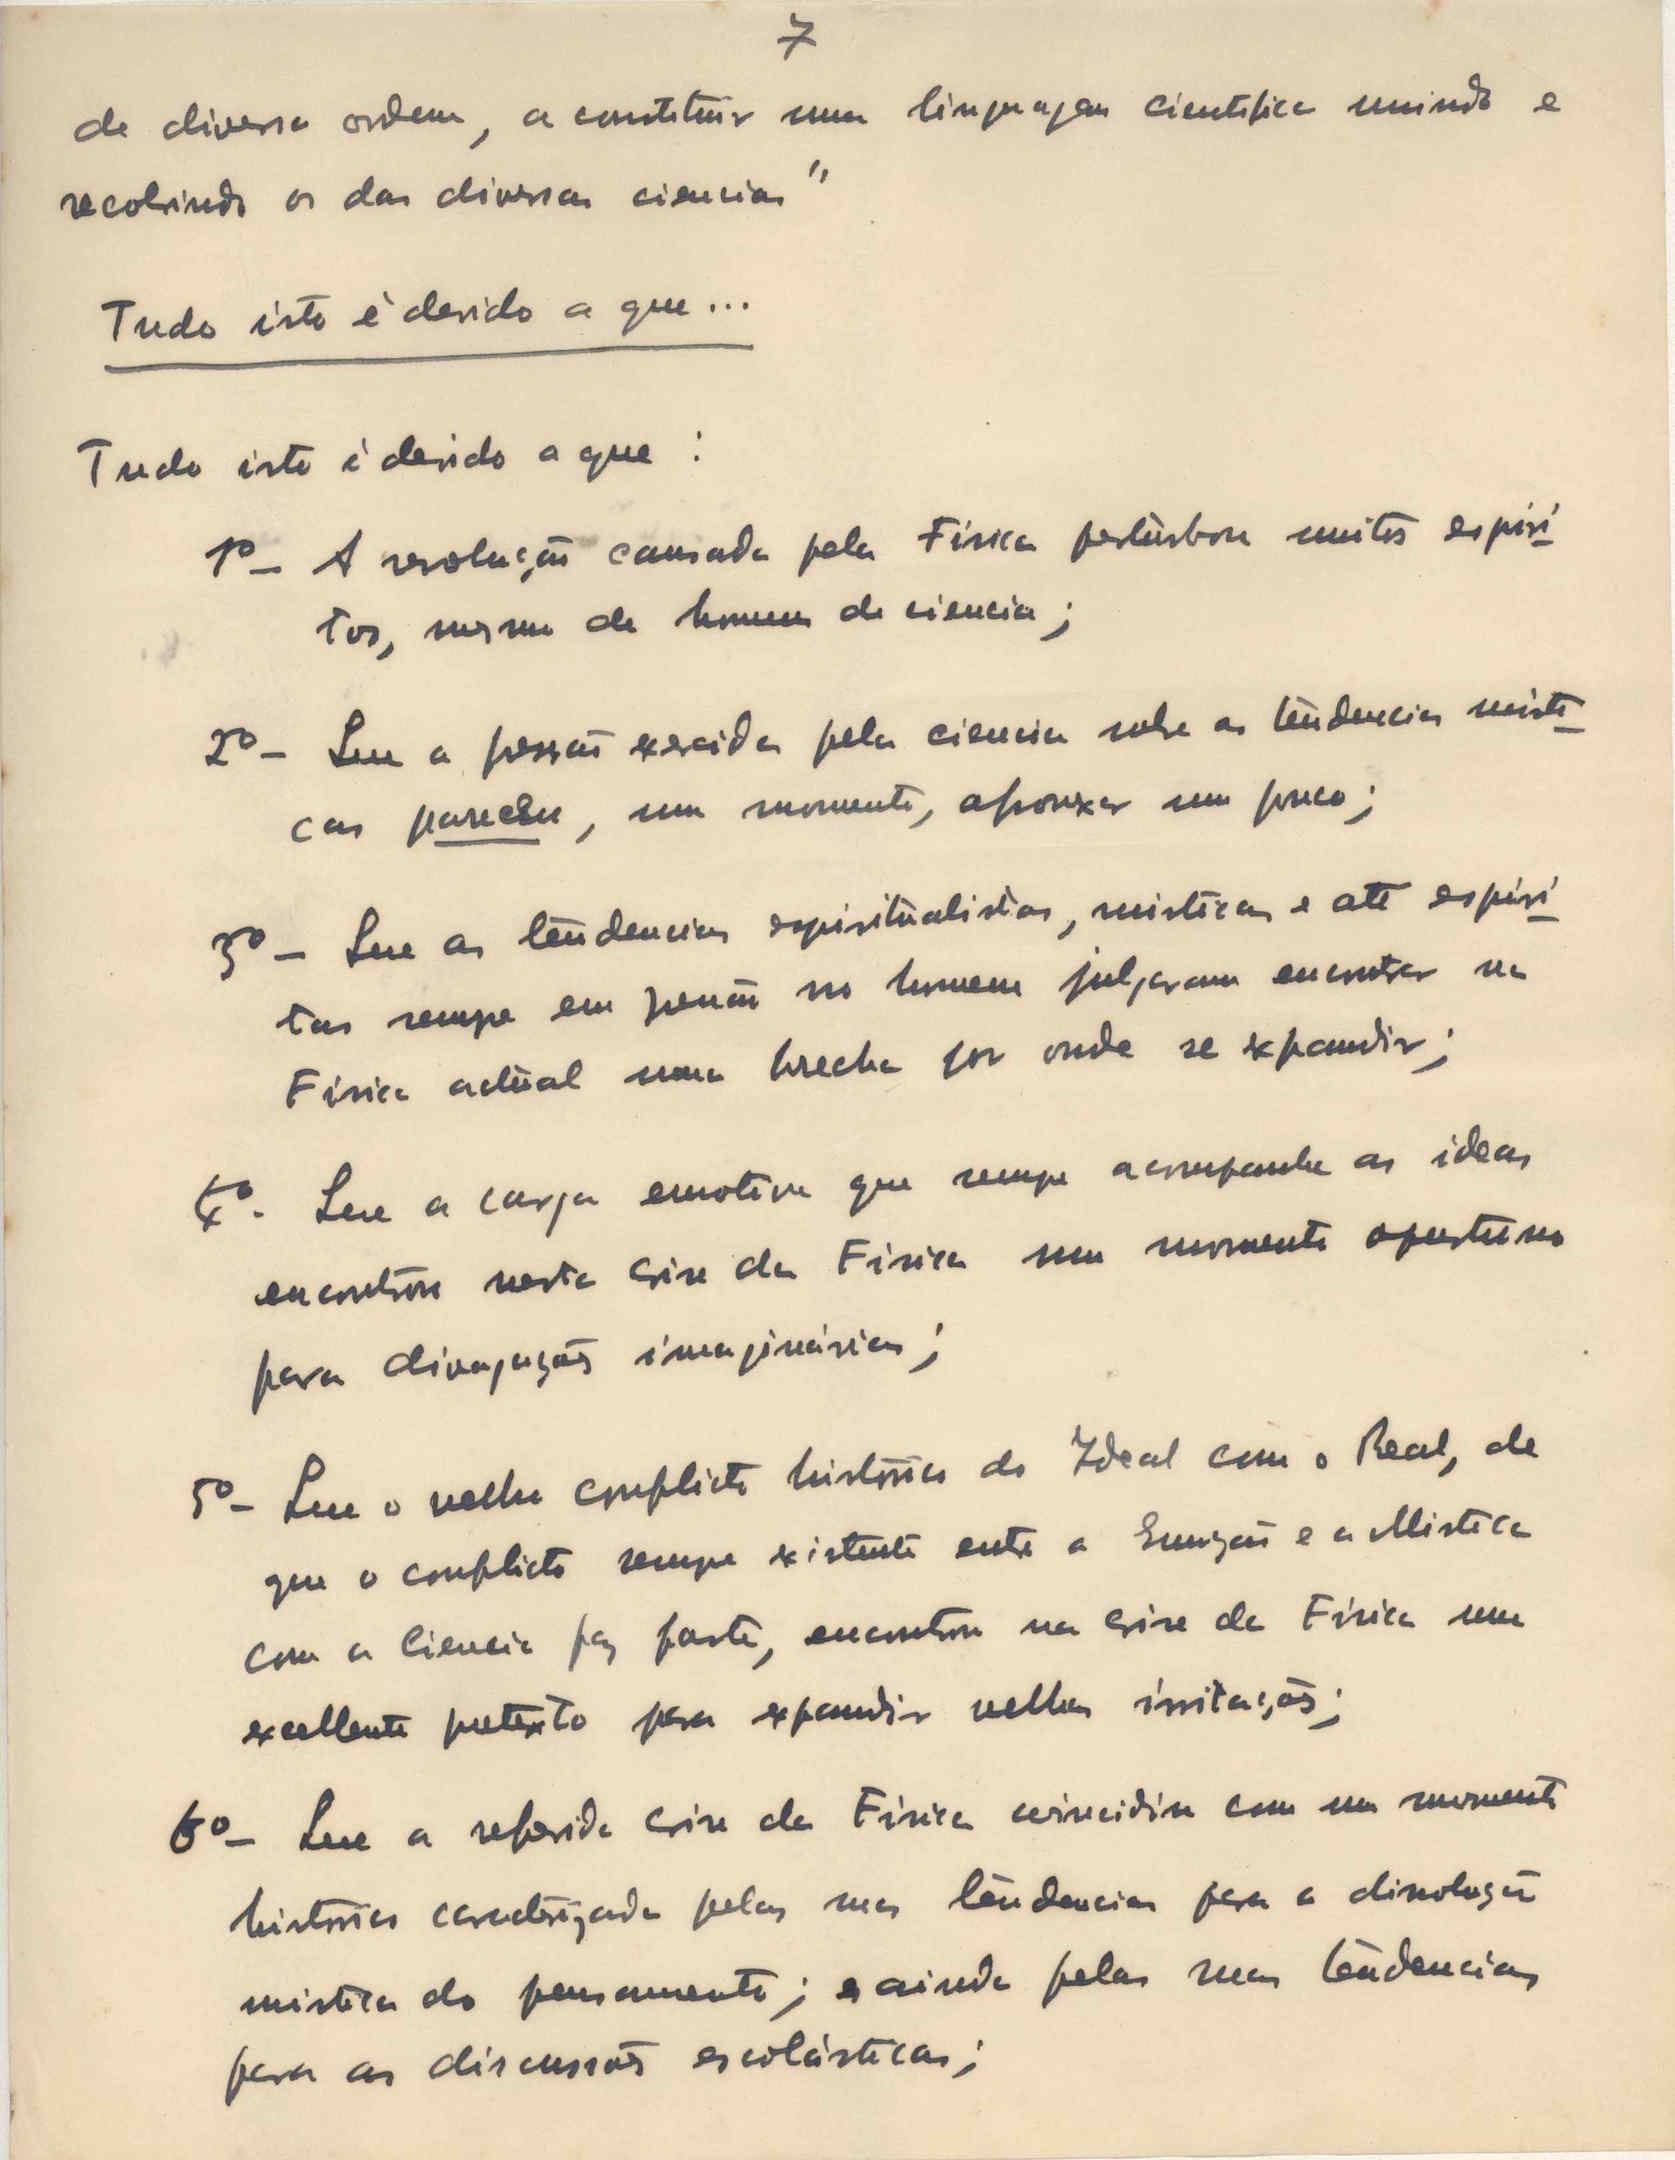 7
de diversa ordem, a constituir uma linguagem cientifica unindo e
recobrindo os das diversas ciencias"
Tudo isto é devido a que...
Tudo isto é devido a que:
1º - A revolução causada pela Física perturbou muitos espiri-
tos, mesmo de homens de ciencia;
2º - Que a pressão exercida pela ciencia sobre as tendencias misti-
cas pareceu, um momento, afrouxar um pouco;
3º - Que as tendencias espiritualistas, misticas e até espiri-
tas sempre em no homem julgaram encontrar na
Física actual uma brecha por onde se expandir;
4º - Que a carga emotiva que sempre acompanha as ideas
encontrou nesta crise da Física um momento oportuno
para divagações imaginárias;
5º - Que o velho conflicto histórico do Ideal com o Real, de
que o conflicto sempre existente entre a Emoção e a Mistica
com a Ciencia faz parte, encontrou na crise da Física um
excellente pretexto para expandir velhas irritações;
6º - Que a referida crise da Física coincidiu com um momento
histórico caracterizado pelas suas tendencias para a dissolução
mistica do pensamento; e ainda pelas suas tendencias
para as discussões escolásticas;